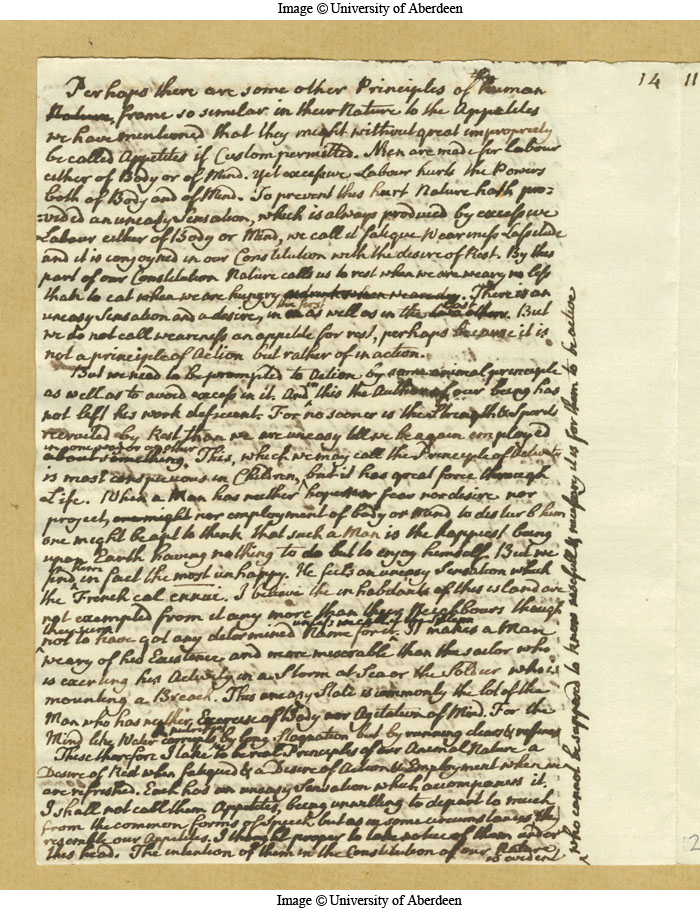 Image © University of Aberdeen
14 11
Perhaps there are some other Principles of the human
Nature, frame so similar in their Nature to the Appetites
we have mentioned that they might without great impropriety
be called Appetites if Custom permitted. Men are made for Labour
either of Body or of Mind. Yet excessive Labour hurts the Powers
both of Body and of Mind. To prevent this hurt Nature hath pro=
=vided an uneasy Sensation, which is always produced by excessive
Labour either of Body or Mind, we call it fatigue Weariness Lassitude
and it is conjoyned in our Constitution with the desire of Rest. By this
part of our Constitution Nature calls us to rest when we are weary no less
than to eat when we are hungry and drink when we are dry. There is an
uneasy Sensation and a desire, in the first as well as in the last. But
we do not call weariness an appetite for rest, perhaps because it is
not a principle of Action but rather of in action.
But we need to be prompted to Action by some animal principle
as well as to avoid excess in it. And in this the Author of our being has
not left his work deficient. For no sooner is the Strength & Spirits
recruited by Rest than we are uneasy till we be again employed
in some way or other
about something. This, which we may call the Principle of Activity
is most conspicuous in Children, but it has great force through
Life. When a Man has neither hope nor fear nor desire nor
project, one might nor employment of body or Mind to disturb him
one might be apt to think that such a Man is the happiest being
upon Earth having nothing to do but to enjoy himself. But we
find him in fact the most unhappy. He feels an uneasy Sensation which
the French cal ennui. I believe the inhabitants of this island are
not exempted from it any more than their Neighbours though
they seem not to have got any determined Name for it. It makes a Man
weary of his Existence, and more miserable than the sailor who
is exerting his Activity in a Storm at Sea or the Soldier who is
mounting a Breach. This uneasy State is commonly the lot of the
Man who has neither Exercise of Body nor Agitation of Mind. For the
Mind like Water by long Stagnation but by running clears & refines
These therefore I take to be real Principles of our Animal Nature a
Desire of Rest when fatigued & a Desire of Action & Employment when we
are refreshed. Each has an uneasy Sensation which accompanies it.
I shall not call them Appetites, being unwilling to depart to much
from the common forms of Speech, but as in some circumstances they
resemble our Appetites. I thought proper to take notice of them under
this head. The intention of them in the Constitution of our Nature
is evident
who cannot be supposed to know usefull & necessary it is for them to be active
2
Image © University of Aberdeen